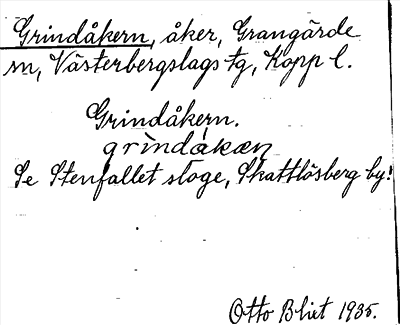 Grindåkern, åker, Grangärde
sn, Västerbergslags tg, Kopp l.
Grindåkern.
grìndåkæņ
Se Stenfallet stoge, Skattlösberg by!
Otto Blixt 1935.